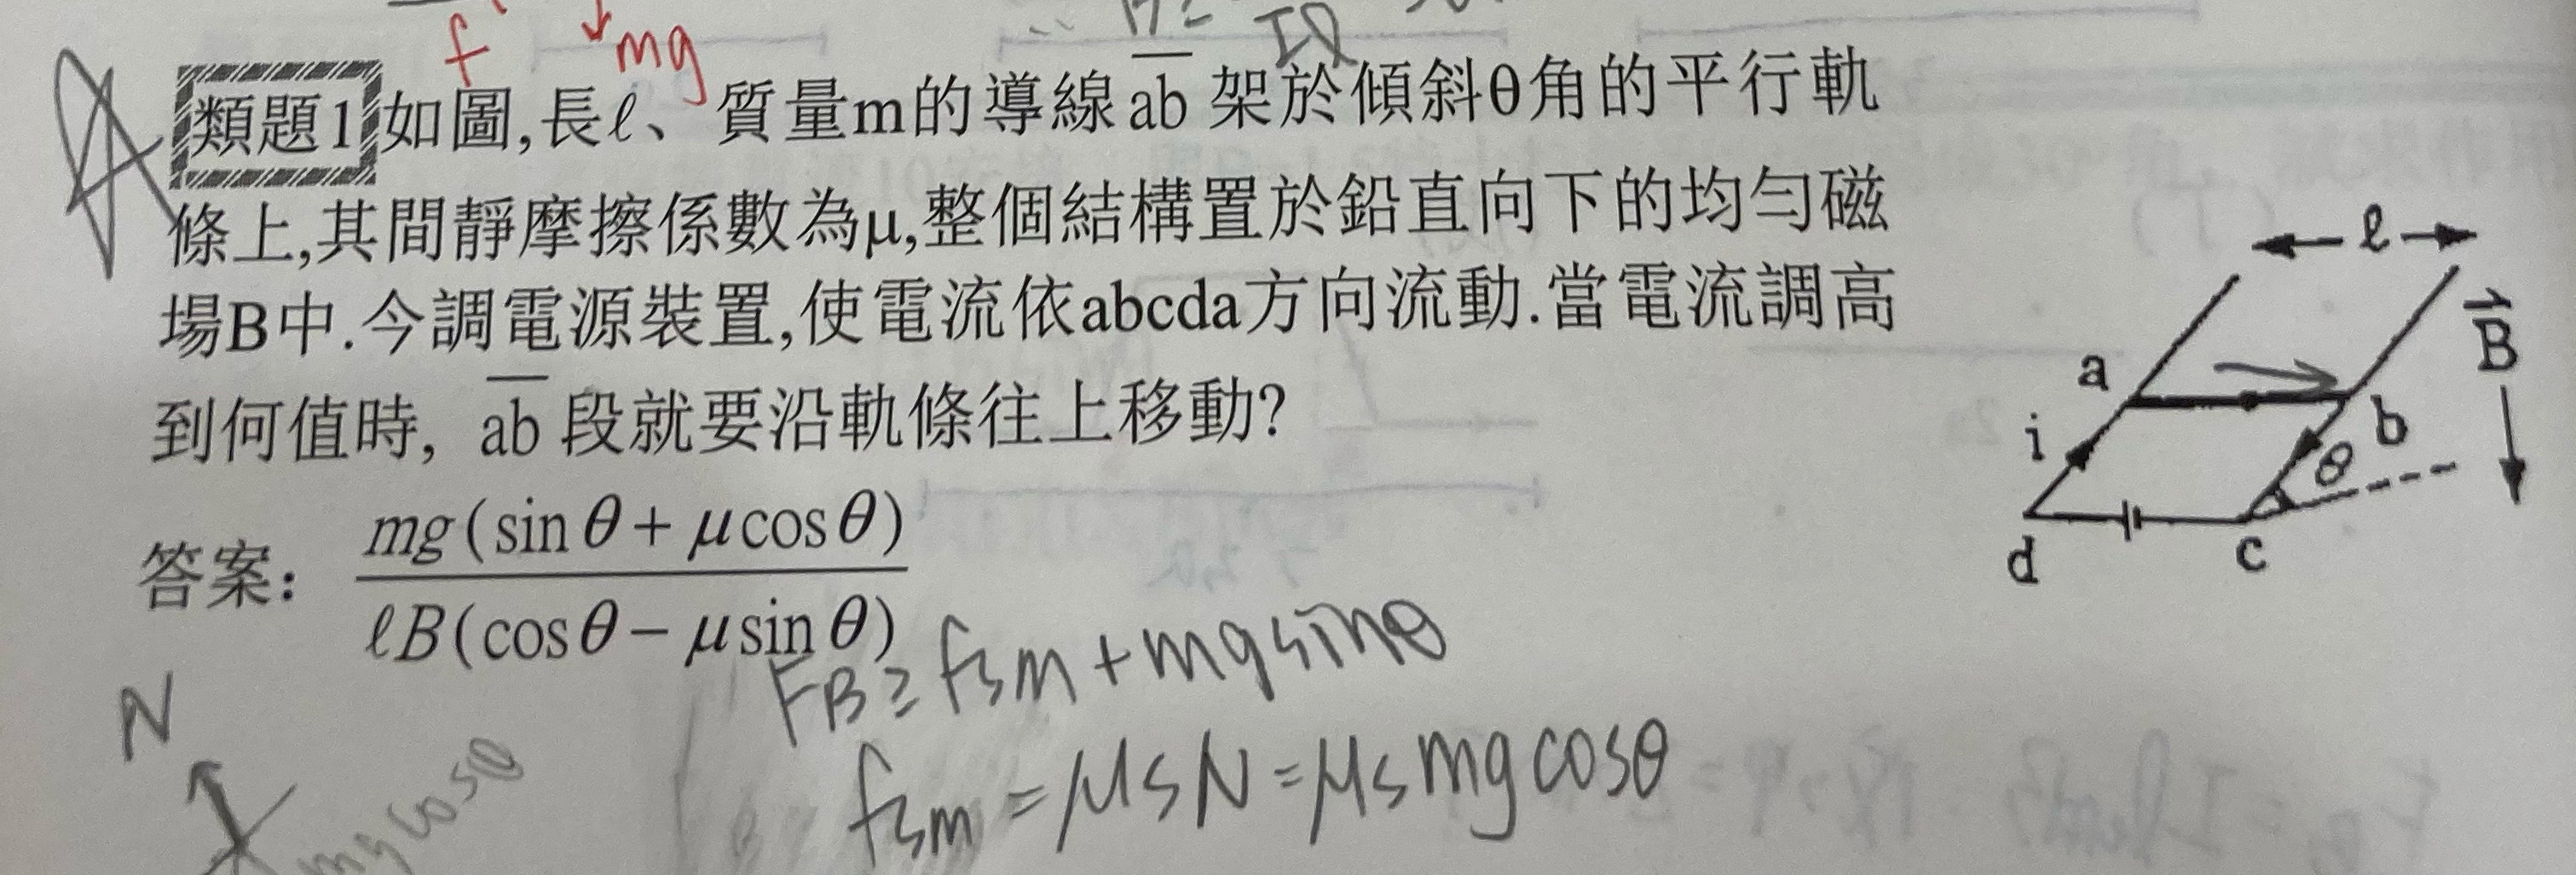 f mg
類題1 如圖,長ℓ、質量m的導線 ab 架於傾斜θ角的平行軌
條上,其間靜摩擦係數為μ,整個結構置於鉛直向下的均勻磁
場B中.今調電源裝置,使電流依abcda方向流動.當電流調高
到何值時, ab 段就要沿軌條往上移動?
答案: mg(sinθ+μcosθ)
ℓB(cosθ−μsinθ)
ℓ
B
a
b
i
θ
d
c
FB≥fsm+mgsinθ
fsm=μsN=μsmgcosθ
N
mgcosθ